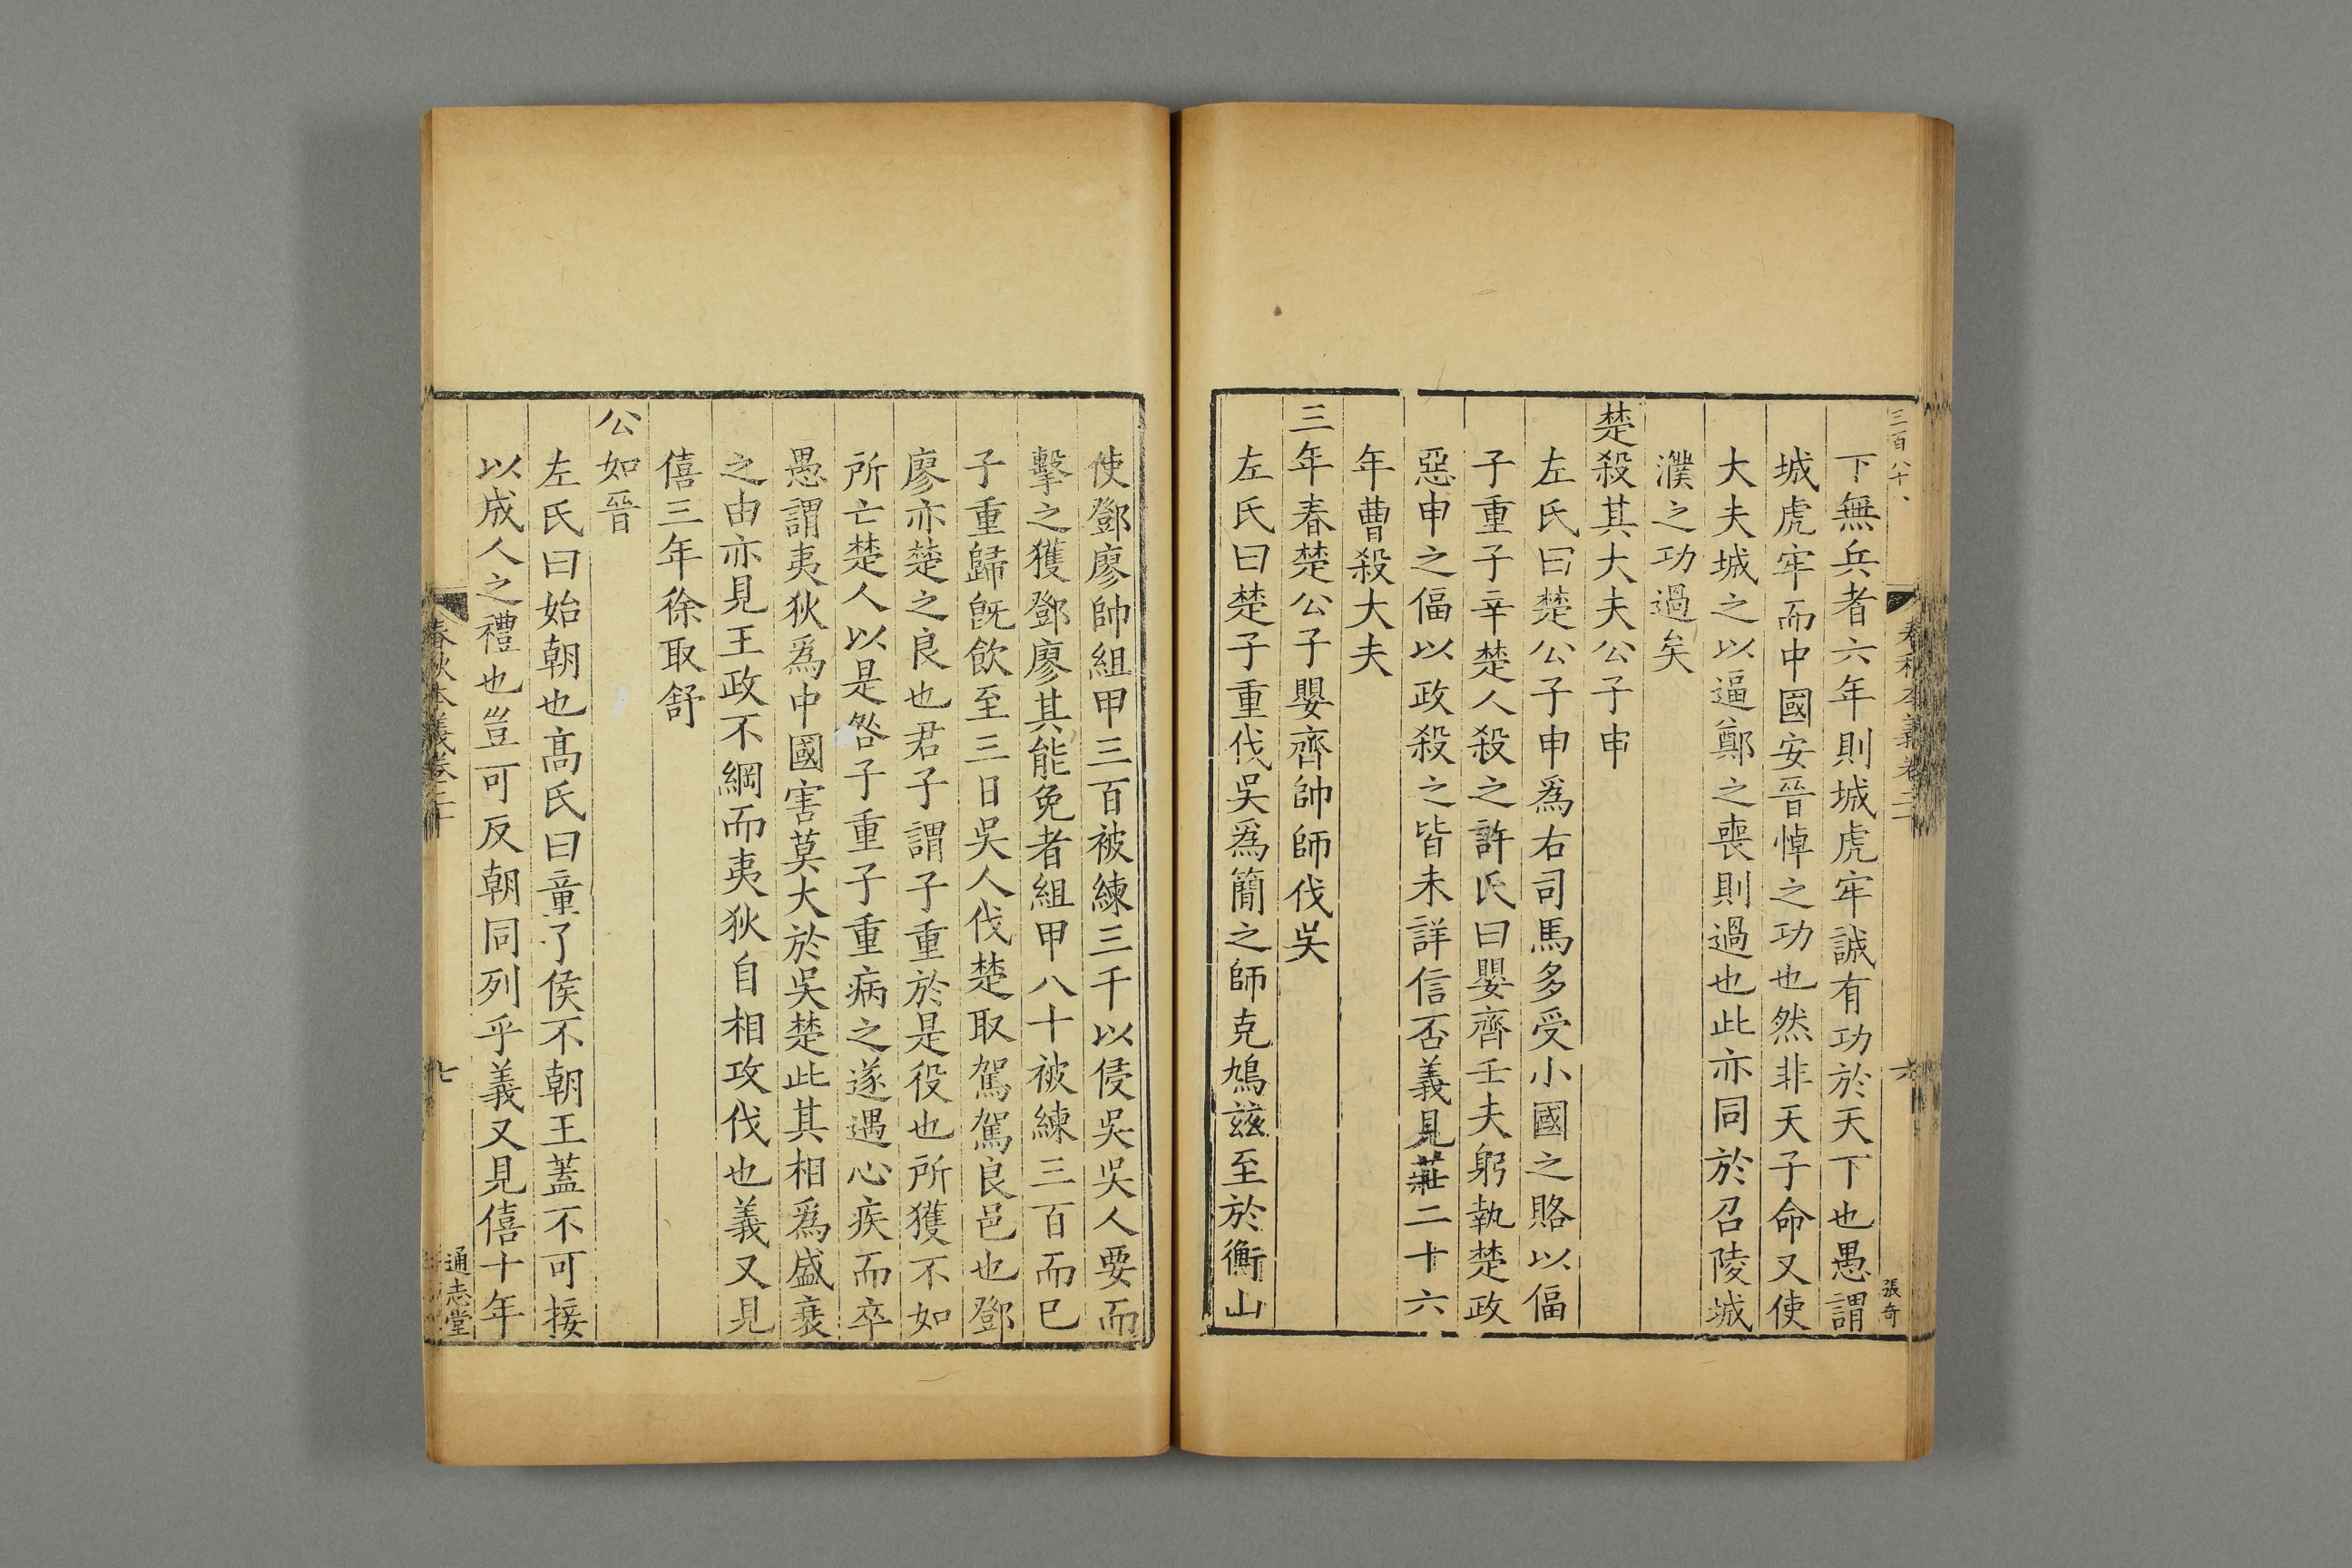 三百八十八
春秋本義卷二十
六
張奇
下無兵者六年則城虎牢誠有功於天下也愚謂
城虎牢而中國安晉悼之功也然非天子命又使
大夫城之以逼鄭之喪則過也此亦同於召陵城
濮之功過矣
楚殺其大夫公子申
左氏曰楚公子申爲右司馬多受小國之賂以偪
子重子辛楚人殺之許氏曰嬰齊壬夫躬執楚政
惡申之偪以政殺之皆未詳信否義見莊二十六
年曹殺大夫
三年春楚公子嬰齊帥師伐吳
左氏曰楚子重伐吳爲簡之師克鳩兹至於衡山
使鄧廖帥組甲三百被練三千以侵吳吳人要而
擊之獲鄧廖其能免者組甲八十被練三百而巳
子重歸旣飲至三日吳人伐楚取駕駕良邑也鄧
廖亦楚之良也君子謂子重於是役也所獲不如
所亡楚人以是咎子重子重病之遂遇心疾而卒
愚謂夷狄爲中國害莫大於吳楚此其相爲盛衰
之由亦見王政不綱而夷狄自相攻伐也義又見
僖三年徐取舒
公如晉
左氏曰始朝也高氏曰童子侯不朝王蓋不可接
以成人之禮也豈可反朝同列乎義又見僖十年
春秋本義卷二十
七
通志堂